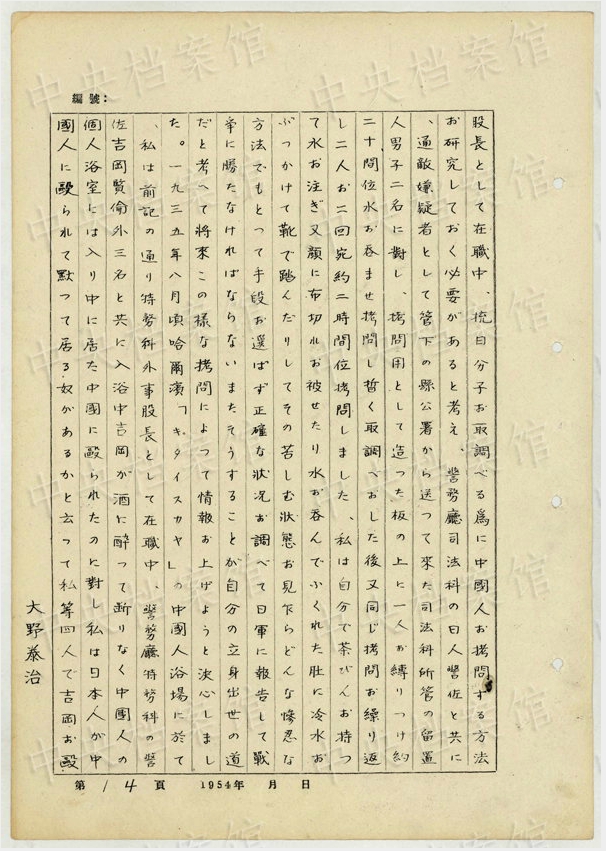 編號：
股長として在職中、抗日分子お取調べる為に中國人お拷問する方法
お研究しておく必要があると考え、警務廳司法科の日人警佐と共に
、通敵嫌疑者として管下の縣公署から送つて来た司法科所管の留置
人男子二名に對し、拷問用として造つた板の上に一人お縛りつけ約
二十間位水お呑ませ拷問し暫く取調べおした後又同じ拷問お繰り返
し二人お二回宛約二時間位拷問しました、私は自分で茶びんお持つ
て水お注ぎ又顔に布切れお被せたり水お呑んでふくれた肚に冷水お
ぶつかけて靴で踏んだりしてその苦しむ狀態お見乍らどんな惨忍な
方法でもとつて手段お選ばず正確な狀况お調べて日軍に報告して戰
爭に勝たなければならないまたそうすることが自分の立身出世の道
だと考へて將來この様な拷問によつて情報お上げようと決心しまし
た。一九三五年八月頃哈爾濱「キタイスカヤ」の中國人浴場に於て
、私は前記の通り特務科外事股長として在職中、警務廳特務科の警
佐吉岡賢倫外三名と共に入浴中吉岡が酒に醉って断りなく中國人の
個人浴室には入り中に居た中國に毆られたのに對し私は日本人が中
國人に毆られて默つて居る奴があるかと云つて私等四人で吉岡お毆
大野泰治
第 14 頁 1954年 月 日
中央档案馆